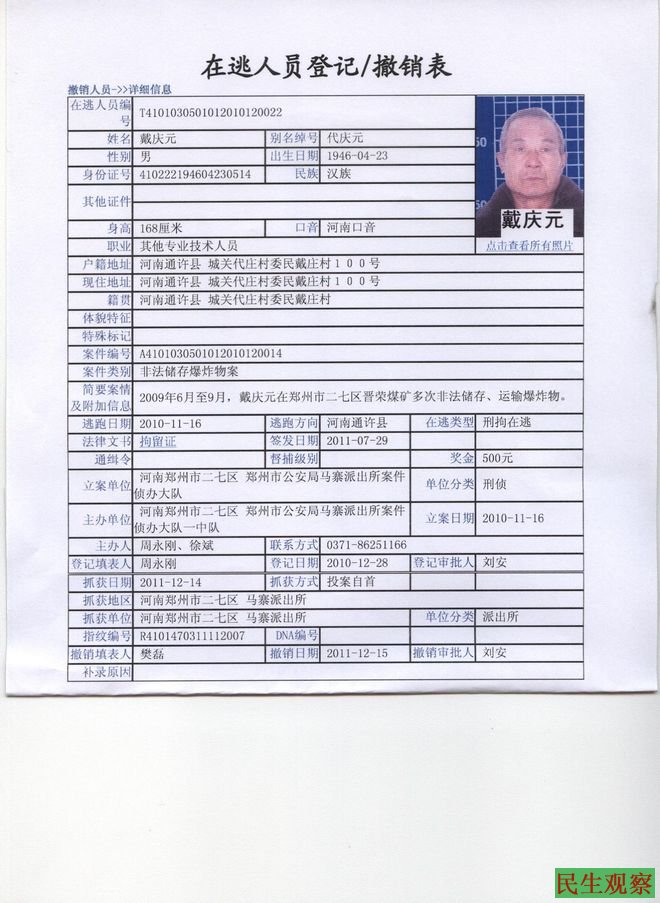 在逃人员登记/撤销表
撤销人员->>详细信息
在逃人员编号 T4101030501012010120022
姓名 戴庆元 别名绰号 代庆元
性别 男 出生日期 1946-04-23
身份证号 410222194604230514 民族 汉族
其他证件
身高 168厘米 口音 河南口音
戴庆元
职业 其他专业技术人员 点击查看所有照片
户籍地址 河南通许县 城关代庄村委民戴庄村１００号
现住地址 河南通许县 城关代庄村委民戴庄村１００号
籍贯 河南通许县 城关代庄村委民戴庄村
体貌特征
特殊标记
案件编号 A4101030501012010120014
案件类别 非法储存爆炸物案
简要案情及附加信息 2009年6月至9月，戴庆元在郑州市二七区晋荣煤矿多次非法储存、运输爆炸物。
逃跑日期 2010-11-16 逃跑方向 河南通许县 在逃类型 刑拘在逃
法律文书 拘留证 签发日期 2011-07-29
通缉令 督捕级别 奖金 500元
立案单位 河南郑州市二七区 郑州市公安局马寨派出所案件侦办大队 单位分类 刑侦
主办单位 河南郑州市二七区 郑州市公安局马寨派出所案件侦办大队一中队 立案日期 2010-11-16
主办人 周永刚、徐斌 联系方式 0371-86251166
登记填表人 周永刚 登记日期 2010-12-28 登记审批人 刘安
抓获日期 2011-12-14 抓获方式 投案自首
抓获地区 河南郑州市二七区 马寨派出所
抓获单位 河南郑州市二七区 马寨派出所 单位分类 派出所
指纹编号 R4101470311112007 DNA编号
撤销填表人 樊磊 撤销日期 2011-12-15 撤销审批人 刘安
补录原因
民生观察